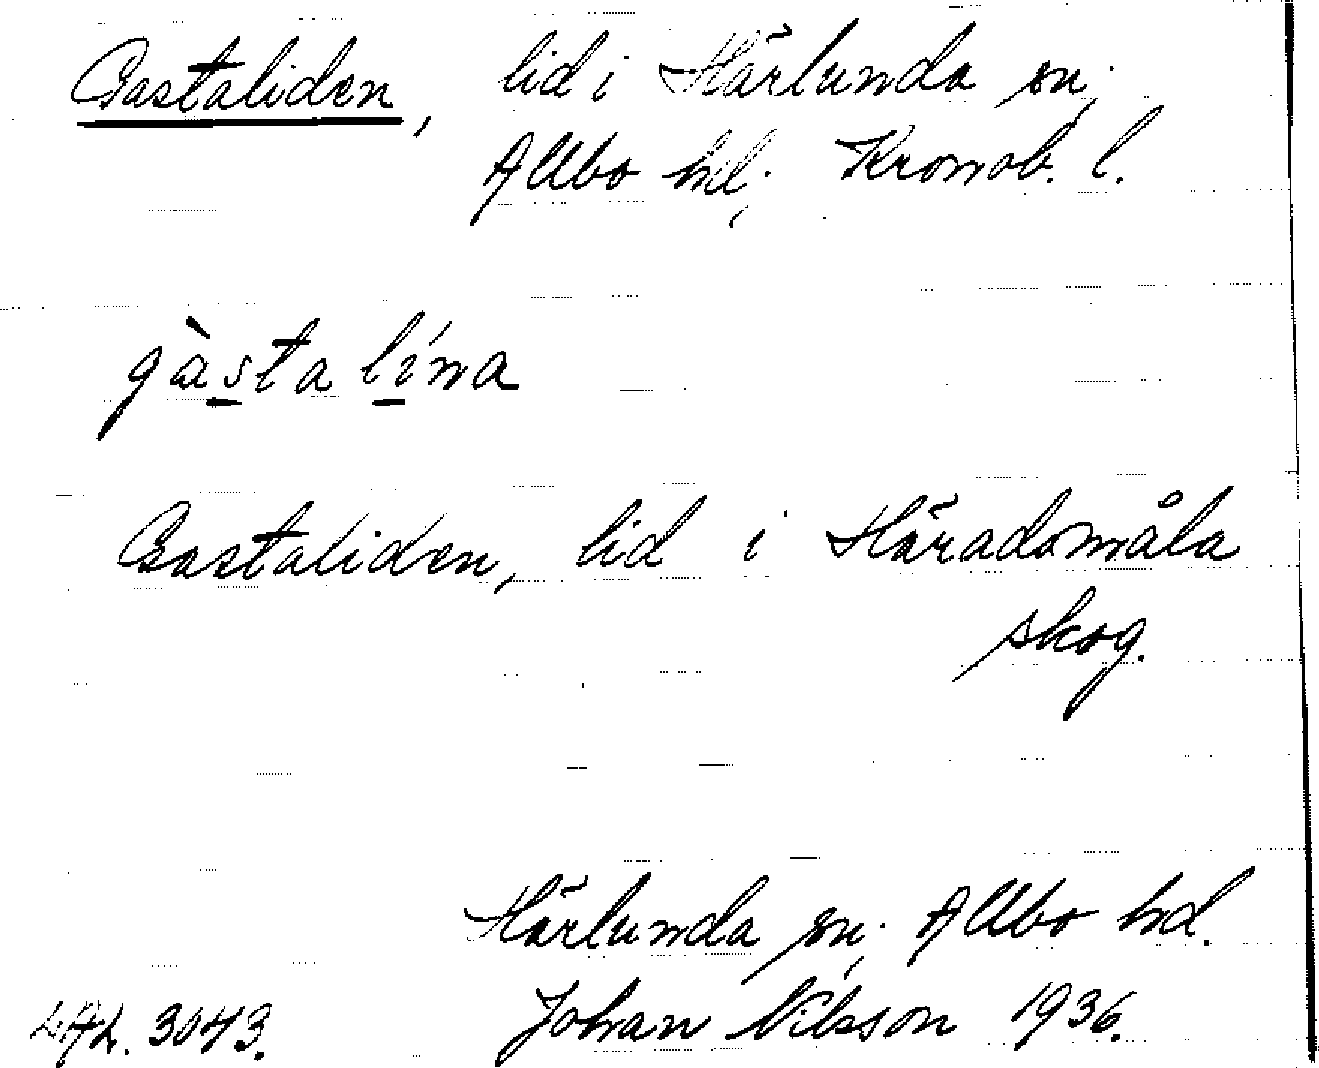 Gastaliden, lid i Härlunda sn;
Allbo hd; Kronob. l.
gàsta lína
Gastaliden, lid i Häradsmåla
skog.
Härlunda sn; Allbo hd.
LAL. 3043. Johan Nilsson 1936.